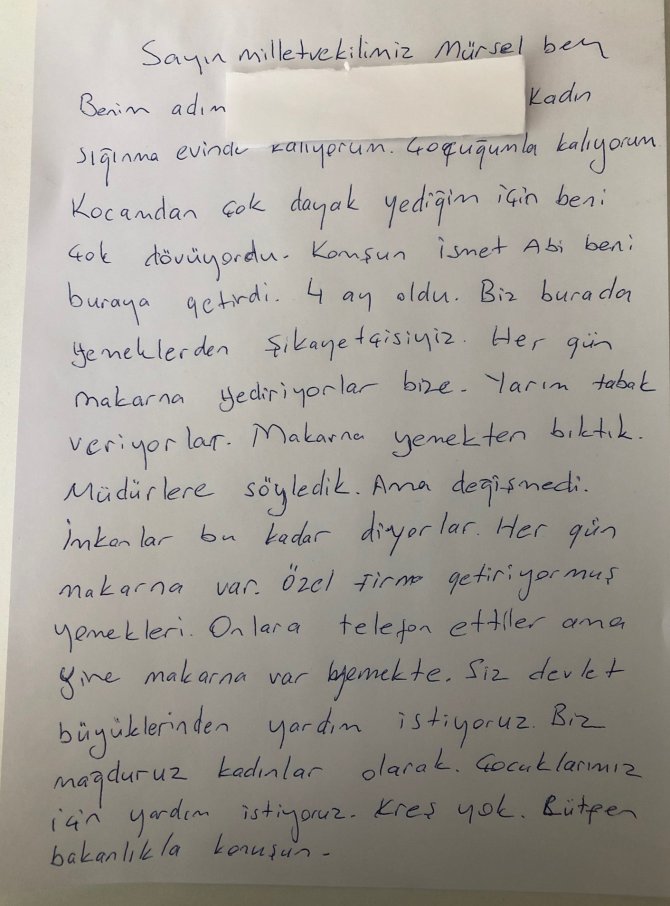 Sayın milletvekilimiz Mürsel bey
Benim adım Kadın
sığınma evinde kalıyorum. Çocuğumla kalıyorum
Kocamdan çok dayak yediğim için beni
çok dövüyordu. Komşum İsmet Abi beni
buraya getirdi. 4 ay oldu. Biz burada
yemeklerden şikayetçisiyiz. Her gün
makarna yediriyorlar bize. Yarım tabak
veriyorlar. Makarna yemekten bıktık.
Müdürlere söyledik. Ama değişmedi.
İmkanlar bu kadar diyorlar. Her gün
makarna var. Özel firma getiriyormuş
yemekleri. Onlara telefon ettiler ama
yine makarna var yemekte. Siz devlet
büyüklerinden yardım istiyoruz. Biz
mağduruz kadınlar olarak. Çocuklarımız
için yardım istiyoruz. Kreş yok. Lütfen
bakanlıkla konuşun.